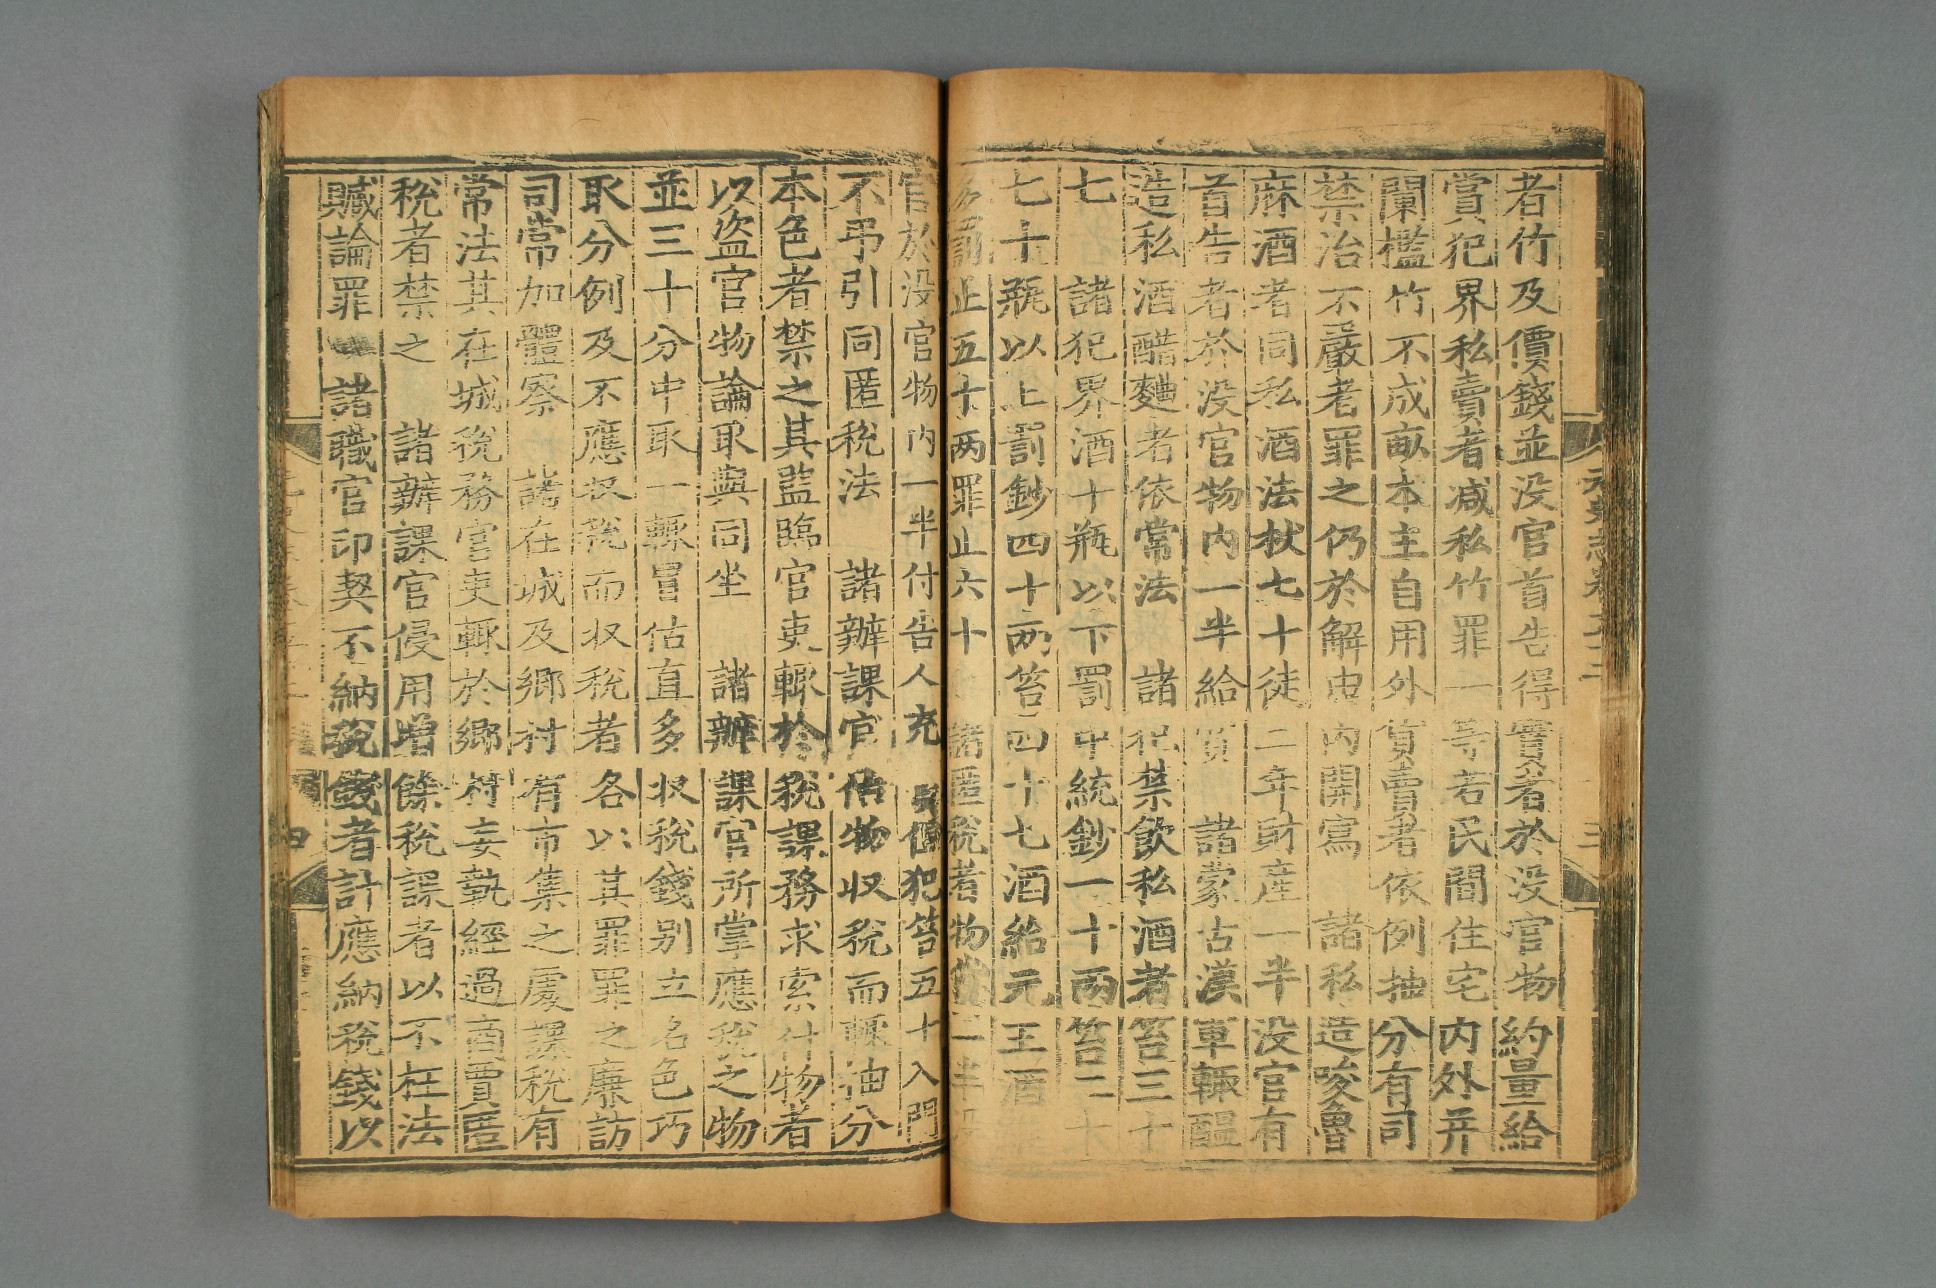 者竹及價錢並没官首告得實者於没官物約量給
賞犯界私賣者减私竹罪一等若民間住宅内外并
闌檻竹不成畝本主自用外貨賣者依例抽分有司
禁治不嚴者罪之仍於解由内開寫　諸私造唆魯
麻酒者同私酒法杖七十徒二年財産一半没官有
首告者於没官物内一半給賞　諸蒙古漢軍輒醞
造私酒醋麴者依常法　諸犯禁飲私酒者笞三十
七　諸犯界酒十瓶以下罰中統鈔一十兩笞二十
七十瓶以上罰鈔四十兩笞四十七酒給元主酒
多罰止五十两罪止六十　諸匿税者物貨一半没
官於没官物内一半付告人充賞但犯笞五十入門
不弔引同匿税法　諸辦課官估物收税而輒抽分
本色者禁之其監臨官吏輒於税課務求索什物者
以盗官物論取與同坐　諸辦課官所掌應税之物
並三十分中取一輒冒估直多收税錢别立名色巧
取分例及不應收税而收税者各以其罪罪之廉訪
司常加體察　諸在城及鄉村有市集之處課税有
常法其在城税務官吏輒於鄉村妄執經過商賈匿
税者禁之　諸辦課官侵用增餘税課者以不枉法
贓論罪　諸職官印契不納税錢者計應納税錢以
元史志卷五十二
三
四